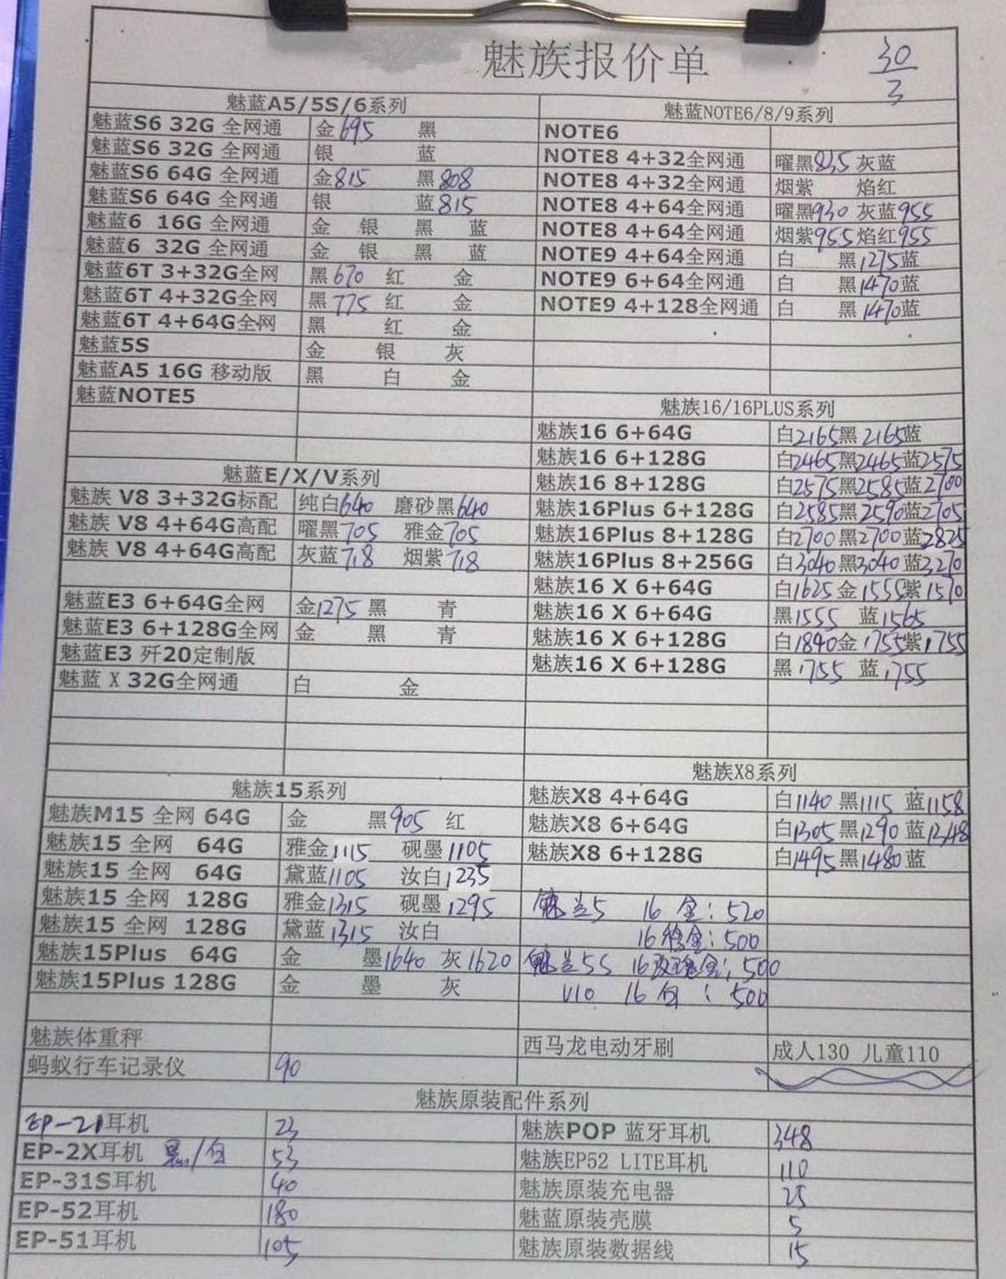 魅族报价单
30
3
魅蓝A5/5S/6系列
魅蓝S6 32G 全网通 金695 黑
魅蓝S6 32G 全网通 银 蓝
魅蓝S6 64G 全网通 金815 黑808
魅蓝S6 64G 全网通 银 蓝815
魅蓝6 16G 全网通 金 银 黑 蓝
魅蓝6 32G 全网通 金 银 黑 蓝
魅蓝6T 3+32G全网 黑670 红 金
魅蓝6T 4+32G全网 黑775 红 金
魅蓝6T 4+64G全网 黑 红 金
魅蓝5S 金 银 灰
魅蓝A5 16G 移动版 黑 白 金
魅蓝NOTE5
魅蓝E/X/V系列
魅族 V8 3+32G标配 纯白640 磨砂黑640
魅族 V8 4+64G高配 曜黑705 雅金705
魅族 V8 4+64G高配 灰蓝718 烟紫718
魅蓝E3 6+64G全网 金1275 黑 青
魅蓝E3 6+128G全网 金 黑 青
魅蓝E3 歼20定制版
魅蓝 X 32G全网通 白 金
魅族15系列
魅族M15 全网 64G 金 黑905 红
魅族15 全网 64G 雅金1115 砚墨1105
魅族15 全网 64G 黛蓝1105 汝白1235
魅族15 全网 128G 雅金1315 砚墨1295
魅族15 全网 128G 黛蓝1315 汝白
魅族15Plus 64G 金 墨1640 灰1620
魅族15Plus 128G 金 墨 灰
魅族体重秤
蚂蚁行车记录仪 90
魅蓝NOTE6/8/9系列
NOTE6
NOTE8 4+32全网通 曜黑835 灰蓝
NOTE8 4+32全网通 烟紫 焰红
NOTE8 4+64全网通 曜黑930 灰蓝955
NOTE8 4+64全网通 烟紫955 焰红955
NOTE9 4+64全网通 白 黑1275蓝
NOTE9 6+64全网通 白 黑1470蓝
NOTE9 4+128全网通 白 黑1470蓝
魅族16/16PLUS系列
魅族16 6+64G 白2165黑2165蓝
魅族16 6+128G 白2465黑2465蓝2575
魅族16 8+128G 白2575黑2585蓝2700
魅族16Plus 6+128G 白2585黑2590蓝2705
魅族16Plus 8+128G 白2700黑2700蓝2825
魅族16Plus 8+256G 白3040黑3040蓝3270
魅族16 X 6+64G 白1625 金1555紫1570
魅族16 X 6+64G 黑1555 蓝1565
魅族16 X 6+128G 白1840金1755紫1755
魅族16 X 6+128G 黑1755 蓝1755
魅族X8系列
魅族X8 4+64G 白1140 黑1115 蓝1158
魅族X8 6+64G 白1305黑1290 蓝1348
魅族X8 6+128G 白1495黑1480蓝
魅兰5 16 金:520
16 粉金:500
魅兰5S 16玫瑰金:500
V10 16 白:500
西马龙电动牙刷 成人130 儿童110
魅族原装配件系列
EP-21耳机 23
EP-2X耳机 黑/白 53
EP-31S耳机 40
EP-52耳机 180
EP-51耳机 105
魅族POP 蓝牙耳机 348
魅族EP52 LITE耳机 110
魅族原装充电器 25
魅蓝原装壳膜 5
魅族原装数据线 15